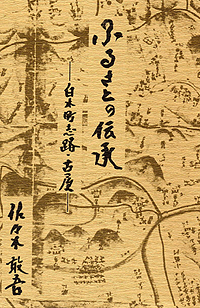 ふるさとの伝承
―白木町志路・古屋―
佐々木敢吾